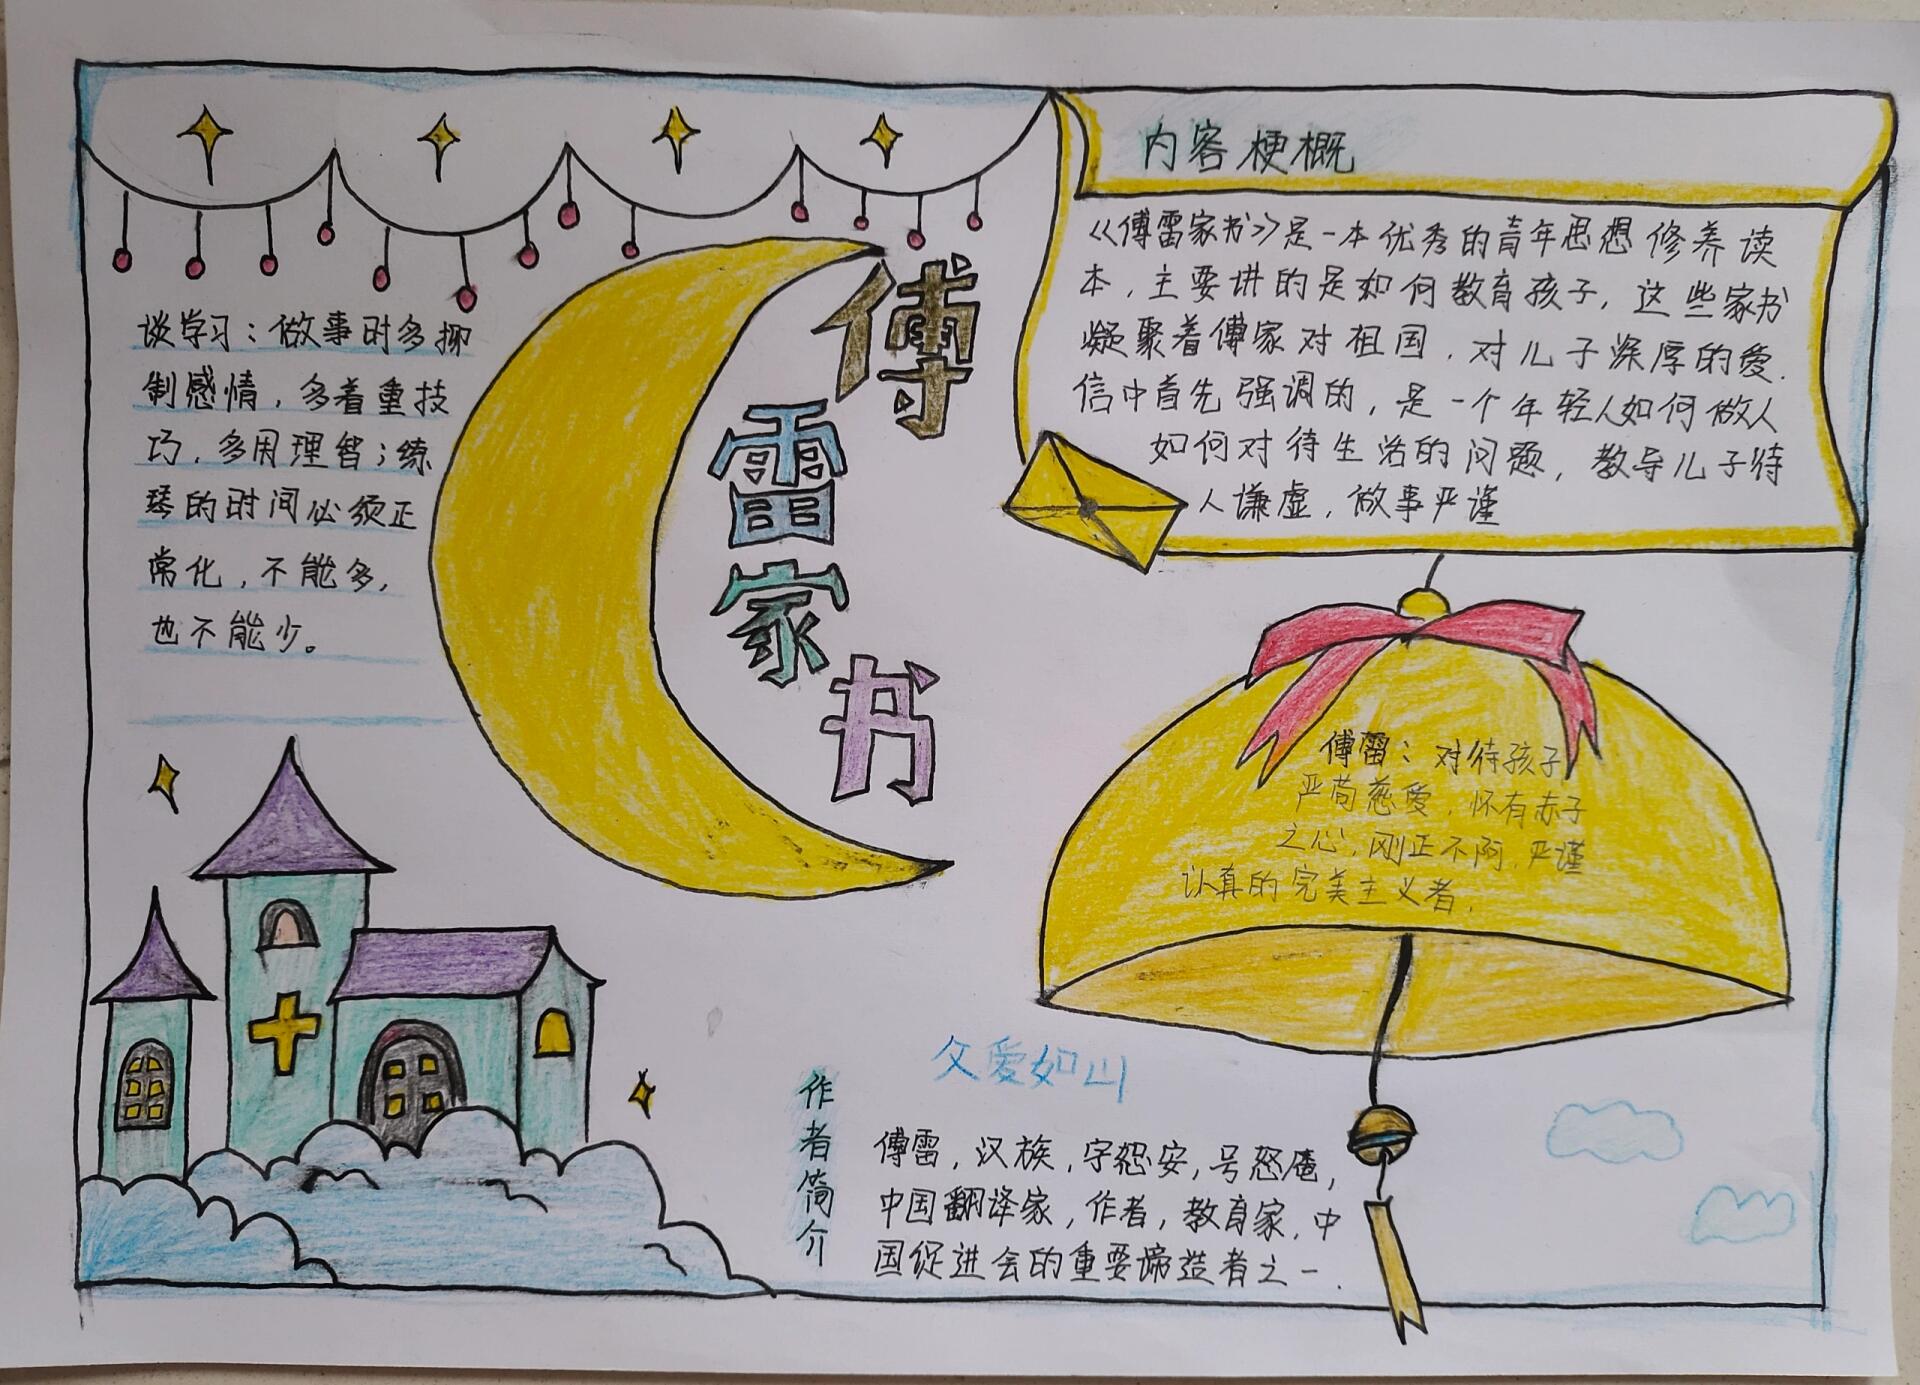 内容梗概
《傅雷家书》是一本优秀的青年思想修养读
本，主要讲的是如何教育孩子，这些家书
凝聚着傅家对祖国，对儿子深厚的爱.
信中首先强调的，是一个年轻人如何做人
如何对待生活的问题，教导儿子待
人谦虚，做事严谨
傅
雷
家
书
谈学习：做事时多抑
制感情，多着重技
巧，多用理智；练
琴的时间必须正
常化，不能多，
也不能少。
傅雷：对待孩子
严苟慈爱，怀有赤子
之心，刚正不阿，严谨
认真的完美主义者.
父爱如山
作者简介
傅雷，汉族，字怨安，号怒庵，
中国翻译家，作者，教育家，中
国促进会的重要缔造者之一.